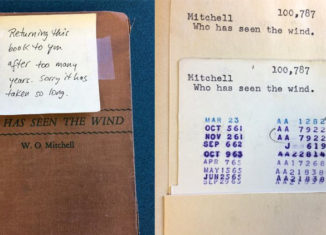 Returning this
book to you
after too many
years. Sorry it has
taken so long.
HAS SEEN THE WIND
W. O. Mitchell
Mitchell 100,787
Who has seen the wind.
Mitchell 100,787
Who has seen the wind.
MAR 23 AA 1282
OCT 561 AA 7922
NOV 261 AA 7922
SEP 662 J 619
OCT 963 AA22814
APR 765 AA17268
MAY1565 AA21838
JUN2565 AA21838
SEP2965